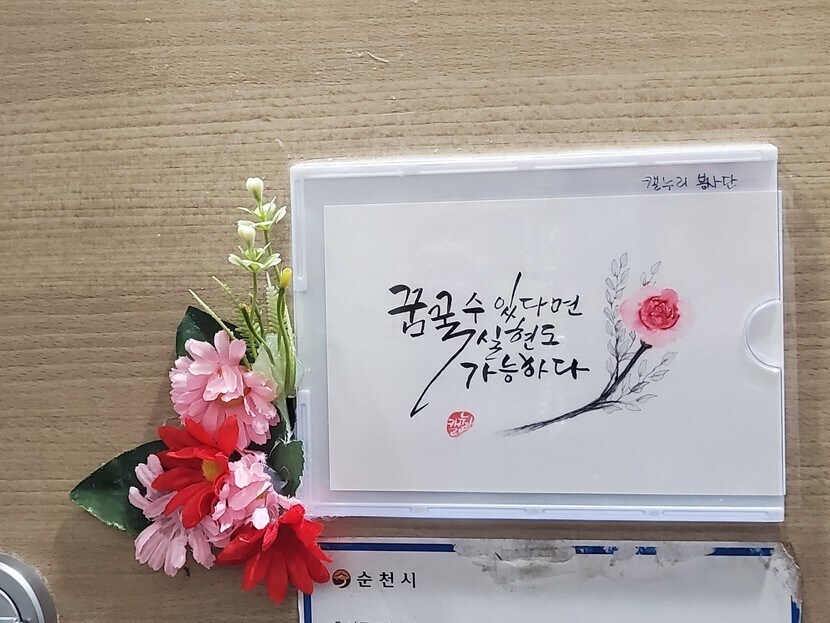 캘누리 봉사단
꿈꿀 수 있다면
실현도
가능하다
순천시